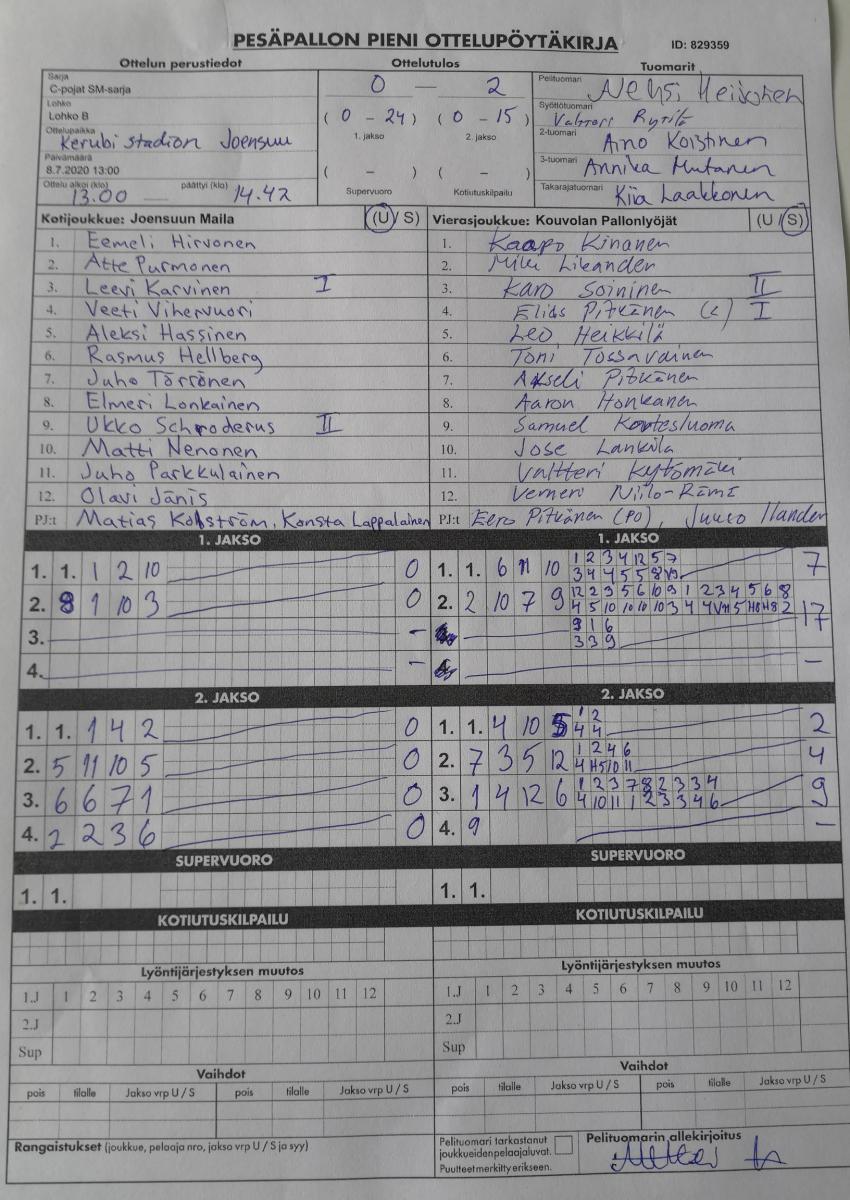 PESÄPALLON PIENI OTTELUPÖYTÄKIRJA ID: 829359
Ottelun perustiedot Ottelutulos Tuomarit
Sarja
C-pojat SM-sarja
0 — 2
Pelituomari
Lohko
Lohko B
(0 - 24) (0 - 15)
1. jakso 2. jakso
Syöttötuomari
Valtteri
Ottelupaikka
Kerubi stadion Joensuu
2-tuomari
Aino Koistinen
Päivämäärä
8.7.2020 13:00
( - ) ( - )
Supervuoro Kotiutuskilpailu
3-tuomari
Annika Mutanen
Ottelu alkoi (klo) 13.00 päättyi (klo) 14.42
Takarajatuomari
Kiia Laakkonen
Kotijoukkue: Joensuun Maila (U / S) Vierasjoukkue: Kouvolan Pallonlyöjät (U / S)
1. Eemeli Hirvonen 1. Kaapo Kinanen
2. Atte Purmonen 2. Miki Likander
3. Leevi Karvinen I 3. Karo Soininen II
4. Veeti Vihervuori 4. Elias Pitkänen (c) I
5. Aleksi Hassinen 5. Leo Heikkilä
6. Rasmus Hellberg 6. Toni Tossavainen
7. Juho Törrönen 7. Akseli Pitkänen
8. Elmeri Lonkainen 8. Aaron Honkanen
9. Ukko Schroderus II 9. Samuel Kortesluoma
10. Matti Nenonen 10. Jose Lankila
11. Juho Parkkulainen 11. Valtteri Kytömäki
12. Olavi Jänis 12. Verneri Niilo-Rämä
PJ:t Matias Kolström, Konsta Lappalainen PJ:t Eero Pitkänen (PO), Juuso Ilander
1. JAKSO 1. JAKSO
1. 1. 1 2 10 0 1. 1. 6 11 10 1 2 3 4 12 5 7 7
3 4 4 5 5 8
2. 8 1 10 3 0 2. 2 10 7 9 12 2 3 5 6 10 9 1 2 3 4 5 6 8 17
4 5 10 10 10 10 3 4 4 5 2
3. - 9 1 6
3 3 9
4. - 4. -
2. JAKSO 2. JAKSO
1. 1. 1 4 2 0 1. 1. 4 10 5 1 2 2
4 4
2. 5 11 10 5 0 2. 7 3 5 12 1 2 4 6 4
4 H5 10 11
3. 6 6 7 1 0 3. 1 4 12 6 1 2 3 7 8 2 3 3 4 9
4 10 11 1 2 3 3 4 6
4. 2 2 3 6 0 4. 9 -
SUPERVUORO SUPERVUORO
1. 1. 1. 1.
KOTIUTUSKILPAILU KOTIUTUSKILPAILU
Lyöntijärjestyksen muutos Lyöntijärjestyksen muutos
1.J 1 2 3 4 5 6 7 8 9 10 11 12 1.J 1 2 3 4 5 6 7 8 9 10 11 12
2.J 2.J
Sup Sup
Vaihdot Vaihdot
pois tilalle Jakso vrp U / S pois tilalle Jakso vrp U / S pois tilalle Jakso vrp U / S pois tilalle Jakso vrp U / S
Rangaistukset (joukkue, pelaaja nro, jakso vrp U / S ja syy)
Pelituomari tarkastanut
joukkueiden pelaajaluvat.
Puutteet merkitty erikseen.
Pelituomarin allekirjoitus